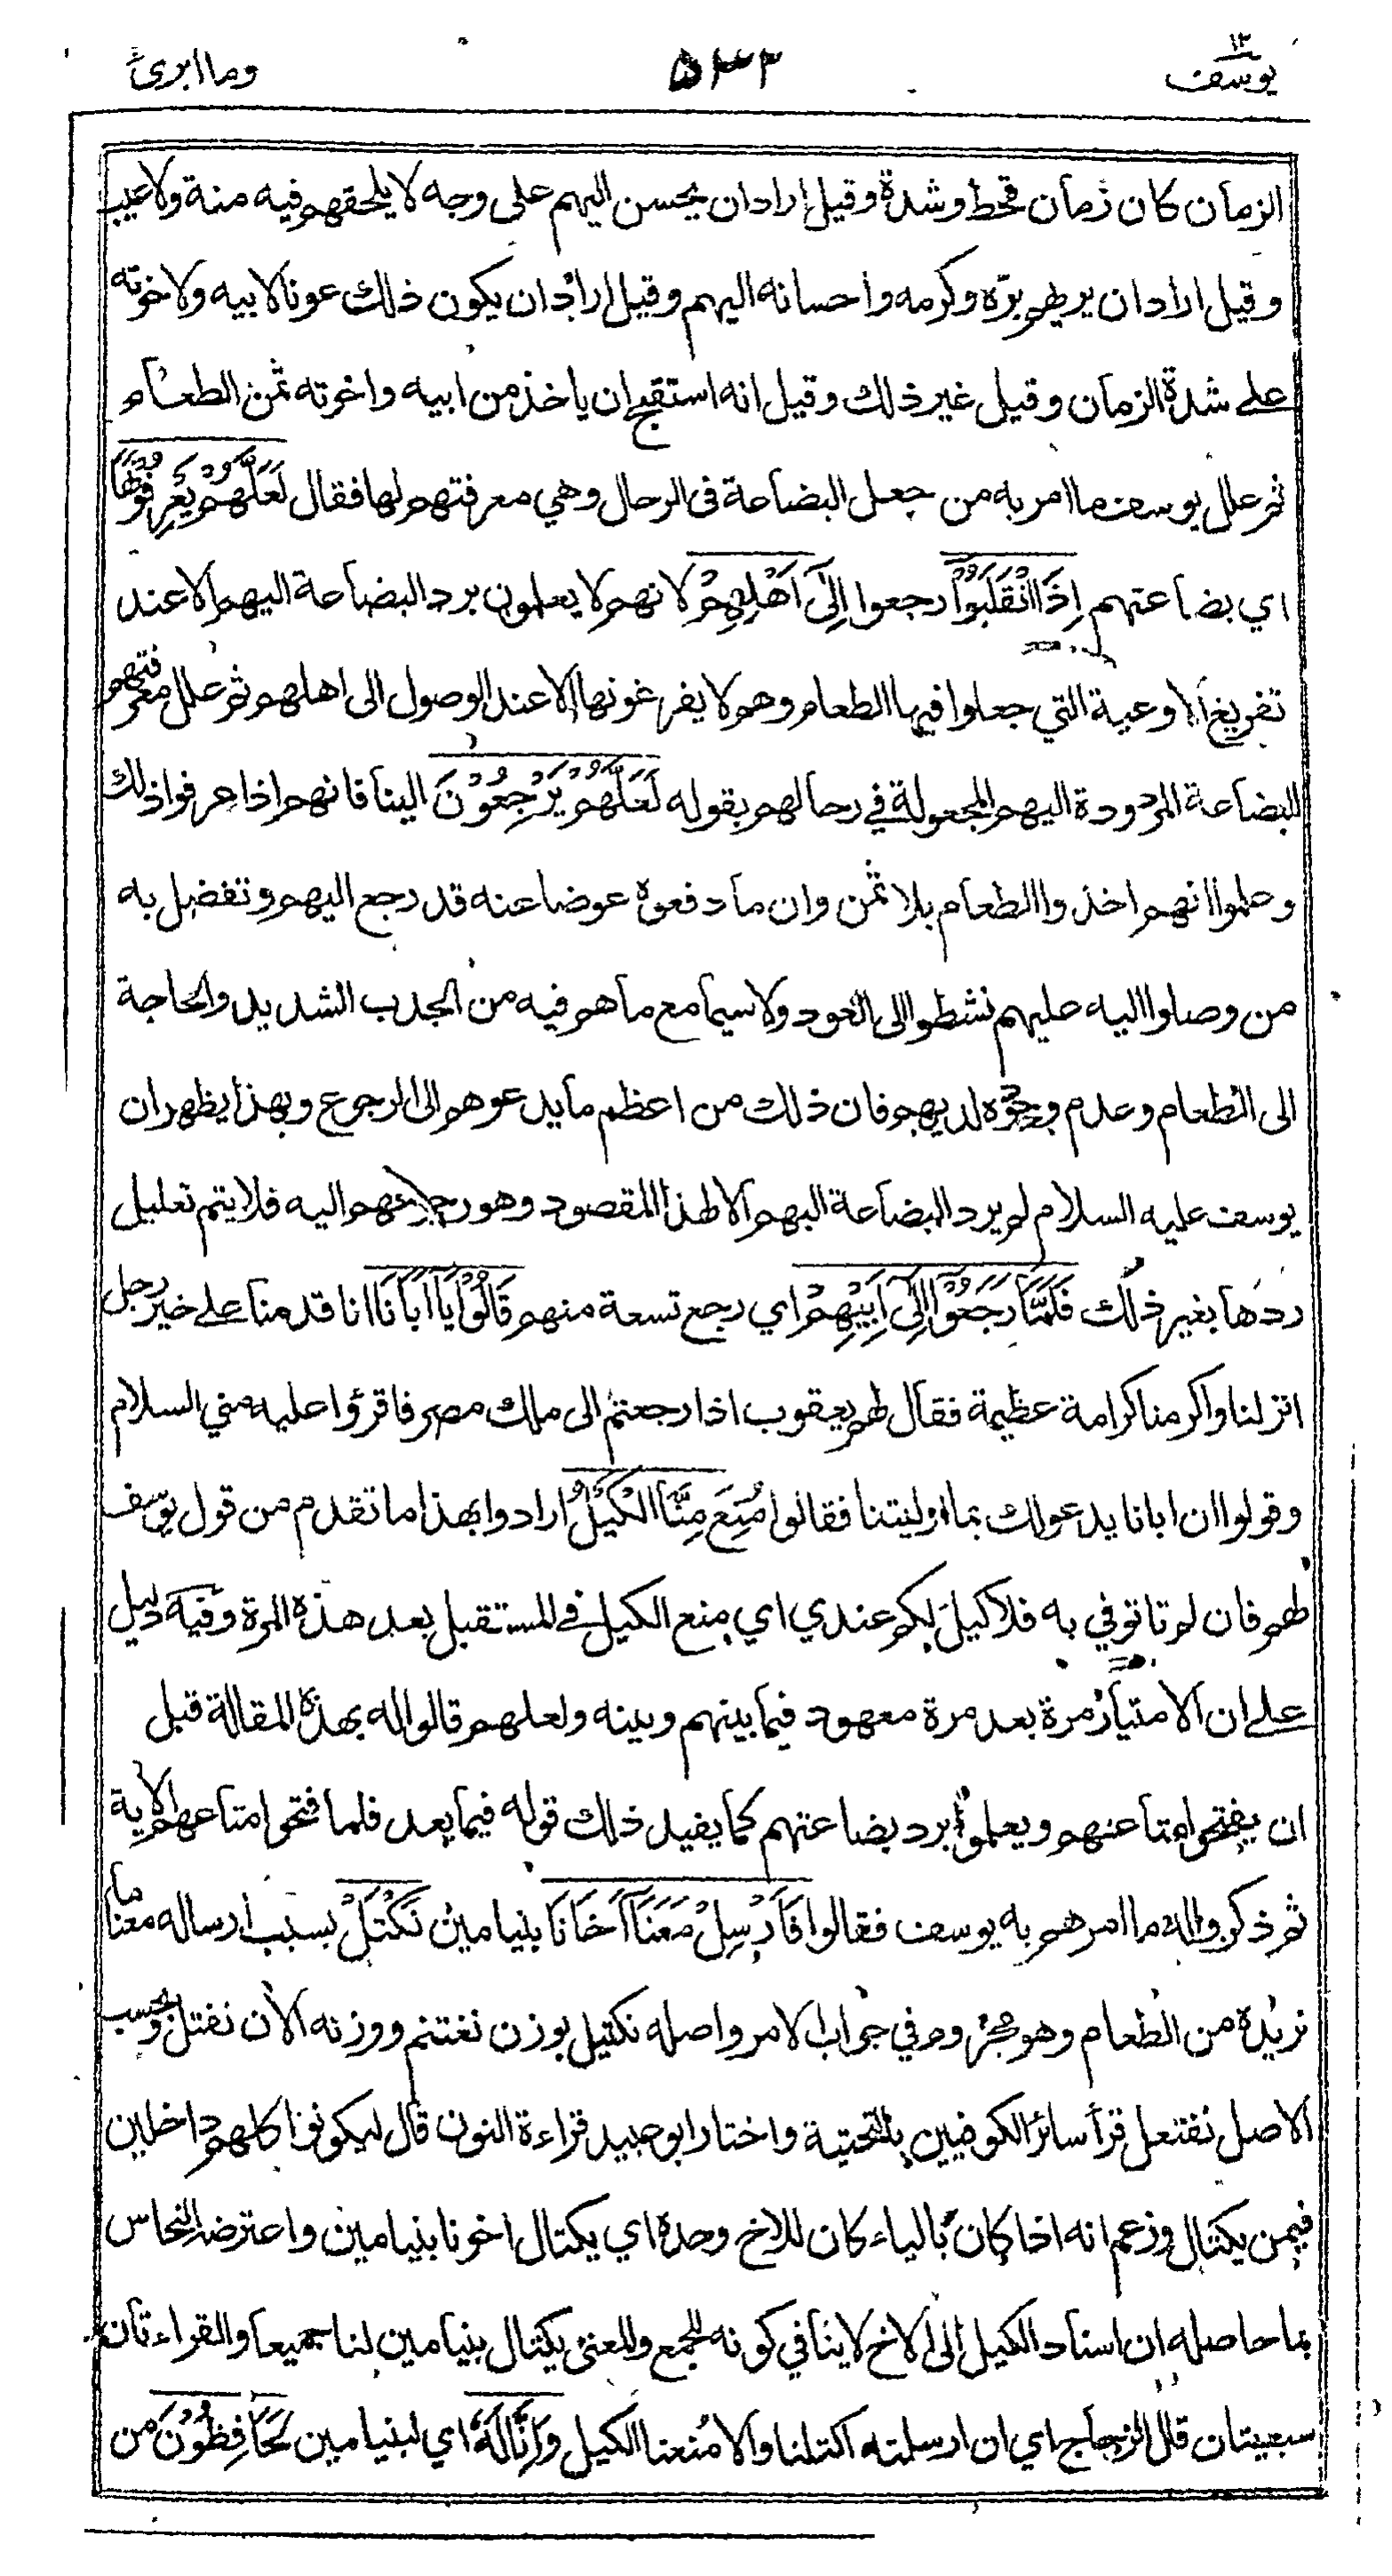 يوسف ١٢
٥٣٢
وما ابرئ
الزمان كان زمان قحط وشدة وقيل اراد ان يحسن اليهم على وجه لا يلحقهم فيه منة ولا عيب
وقيل اراد ان يريهم برّه وكرمه واحسانه اليهم وقيل اراد ان يكون ذلك عونا لابيه ولاخوته
على شدة الزمان وقيل غير ذلك وقيل انه استقبح ان ياخذ من ابيه واخوته ثمن الطعام
ثم علل يوسف ما امر به من جعل البضاعة فى الرحال وهي معرفتهم لها فقال لَعَلَّهُمْ يَعْرِفُوْنَهَا
اي بضاعتهم اِذَا انْقَلَبُوْا رجعوا اِلٰى اَهْلِهِمْ لانهم لا يعلمون برد البضاعة اليهم الا عند
تفريغ الاوعية التي جعلوا فيها الطعام وهم لا يفرغونها الا عند الوصول الى اهلهم ثم علل معرفتهم
البضاعة المردودة اليهم المجعولة في رحالهم بقوله لَعَلَّهُمْ يَرْجِعُوْنَ الينا فانهم اذا عرفوا ذلك
وعلموا انهم اخذوا الطعام بلا ثمن وان ما دفعوه عوضا عنه قد رجع اليهم وتفضل به
من وصلوا اليه عليهم نشطوا الى العود ولا سيما مع ما هم فيه من الجدب الشديد والحاجة
الى الطعام وعدم وجوده لديهم فان ذلك من اعظم ما يدعوهم الى الرجوع وبهذا يظهر ان
يوسف عليه السلام لم يرد البضاعة اليهم الا لهذا المقصود وهو رجوعهم اليه فلا يتم تعليل
ردها بغير ذلك فَلَمَّا رَجَعُوْا اِلٰى اَبِيْهِمْ اي رجع تسعة منهم قَالُوْا يَا اَبَانَا انا قدمنا على خير رجل
انزلنا واكرمنا كرامة عظيمة فقال لهم يعقوب اذا رجعتم الى ملك مصر فاقرؤا عليه مني السلام
وقولوا ان ابانا يدعو لك بما اوليتنا فقالوا مُنِعَ مِنَّا الْكَيْلُ ارادوا بهذا ما تقدم من قول يوسف
لهم فان لم تاتوني به فلا كيل لكم عندي اي منع الكيل في المستقبل بعد هذه المرة وفيه دليل
على ان الامتيار مرة بعد مرة معهود فيما بينهم وبينه ولعلهم قالوا له بهذه المقالة قبل
ان يفتحوا متاعهم ويعلموا برد بضاعتهم كما يفيد ذلك قوله فيما بعد فلما فتحوا متاعهم الاية
ثم ذكروا له ما امرهم به يوسف فقالوا فَاَرْسِلْ مَعَنَا اَخَانَا بنيامين نَكْتَلْ بسبب ارساله معنا ما
نريده من الطعام وهو مجزوم في جواب الامر واصله نكتيل بوزن نغتنم ووزنه الان نفتل وبحسب
الاصل نفتعل قرأ سائر الكوفيين بالتحتية واختار ابو عبيد قراءة النون قال ليكونوا كلهم داخلين
فيمن يكتال وزعم انه اذا كان بالياء كان للاخ وحده اي يكتال اخونا بنيامين واعترضه النحاس
بما حاصله ان اسناد الكيل الى الاخ لا ينافي كونه للجميع والمعنى يكتال بنيامين لنا جميعا والقراءتان
سبعيتان قال الزجاج اي ان ارسلته اكتلنا والا منعنا الكيل وَاِنَّا لَهٗ اي لبنيامين لَحَافِظُوْنَ من